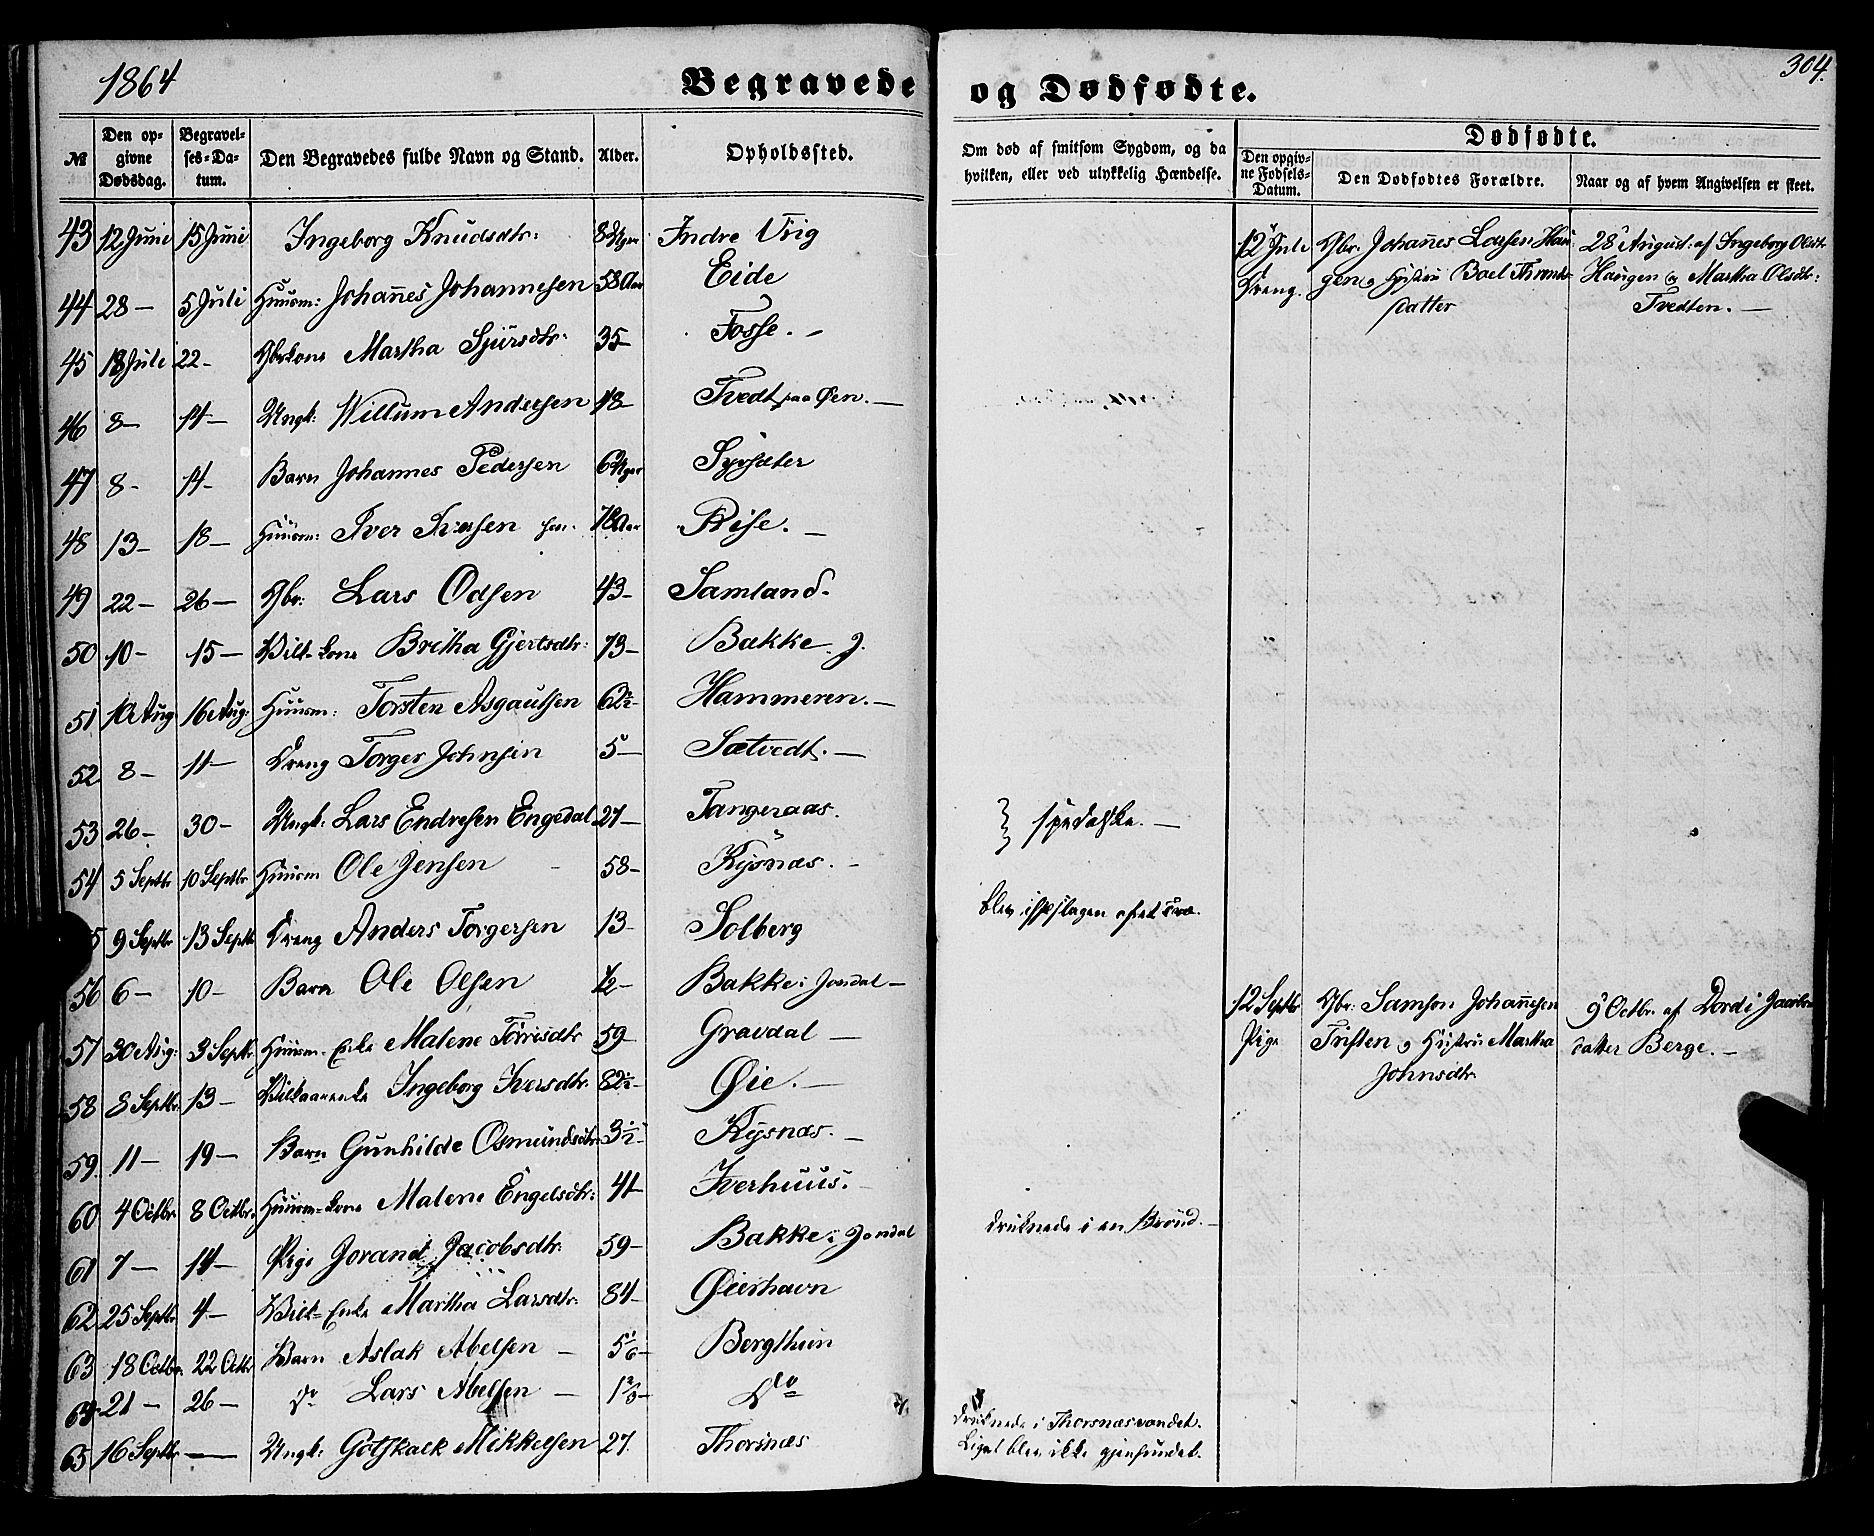 1864
Begravede og Dødfødte.
304.
№
Den opgivne Dødsdag.
Begravelses-Datum.
Den Begravedes fulde Navn og Stand.
Alder.
Opholdssted.
Om død af smitsom Sygdom, og da hvilken, eller ved ulykkelig Hændelse.
Dødfødte.
Den opgivne Fødsels-Datum.
Den Dødfødtes Forældre.
Naar og af hvem Angivelsen er skeet.
43 12 Juni 15 Juni Ingeborg Knudsdtr: 8 Uger Indre
44 28 – 5 Juli Huusm: Johannes Johannesen 58 Aar Eide
45 18 Juli 22 – Gbrkone Martha Sjursdtr. 35 Fosse. –
46 8 – 14 – Ungk: Willum Andersen 18 – Tvedt paa Øen. –
47 8 – 14 – Barn Johannes Pedersen 6 Uger
48 13 – 18 – Huusm: Iver Iversen sen. Aar Rise. –
49 22 – 26 – Gbr: Lars Odsen 43 – Samland.
50 10 – 15 – Vilk. kone Britha Gjertsdtr: 73 – Bakke J.
51 10 Aug 16 Aug: Huusm: Torsten Asgautsen 62½ – Hammeren. –
52 8 – 11 – Dreng Torger Johnsen 5 – Sætvedt. –
53 26 – 30 – Ungk: Lars Endresen Engedal 27 – Tangeraas. } spedalske. –
54 5 Septbr 10 Septbr Huusm Ole Jensen – 58 – Kysnæs. –
5 9 Septbr 13 Septbr Dreng Anders Torgersen 13 – Solberg blev ihjelslagen af et Træ.
56 6 – 10 – Barn Ole Olsen ½ – Bakke i Jondal –
57 30 Aug: 3 Septbr. Huusm. Enke Malene Torrisdtr 59 – Gravdal –
58 8 Septbr. 13 – Vilkaarenke Ingeborg Iversdtr. 82½ – Øie. –
59. 11 – 19 – Barn Gunhilde Osmundsdtr 3½ – Kysnæs. –
60 4 Octbr. 8 Octbr. Huusm-kone Malene Engelsdtr: 41 – Iverhuus.
61 7 – 14 – Pige Jorand Jacobsdtr. 59 – Bakke i Jondal druknede i en Brønd. –
62 25 Septbr. 4 – Vilk-Enke Martha Larsdtr. 84 – Øiershavn
63 18 Octbr. 22 Octbr Barn Aslak Abelsen – Bergthun
64 21 – 26 – Do Lars Abelsen – Do
65 16 Septbr. – Ungk: Gotskalk Mikkelsen 27. Thorsnæs druknede i Thorsnæsvandet.
Liget blev ikke gjenfundet.
12 Juli Gbr. Johannes Larsen Hau- 28 August. af Ingeborg Olsdtr
Dreng. gen og Hustru Boel Thronds- Haugen og Martha Olsdtr:
datter Tvedten. –
12 Septbr Gbr: Samson Johannesen 9 Octbr. af Dordi
Pige og Hustru Martha datter Berge. –
Johnsdtr.